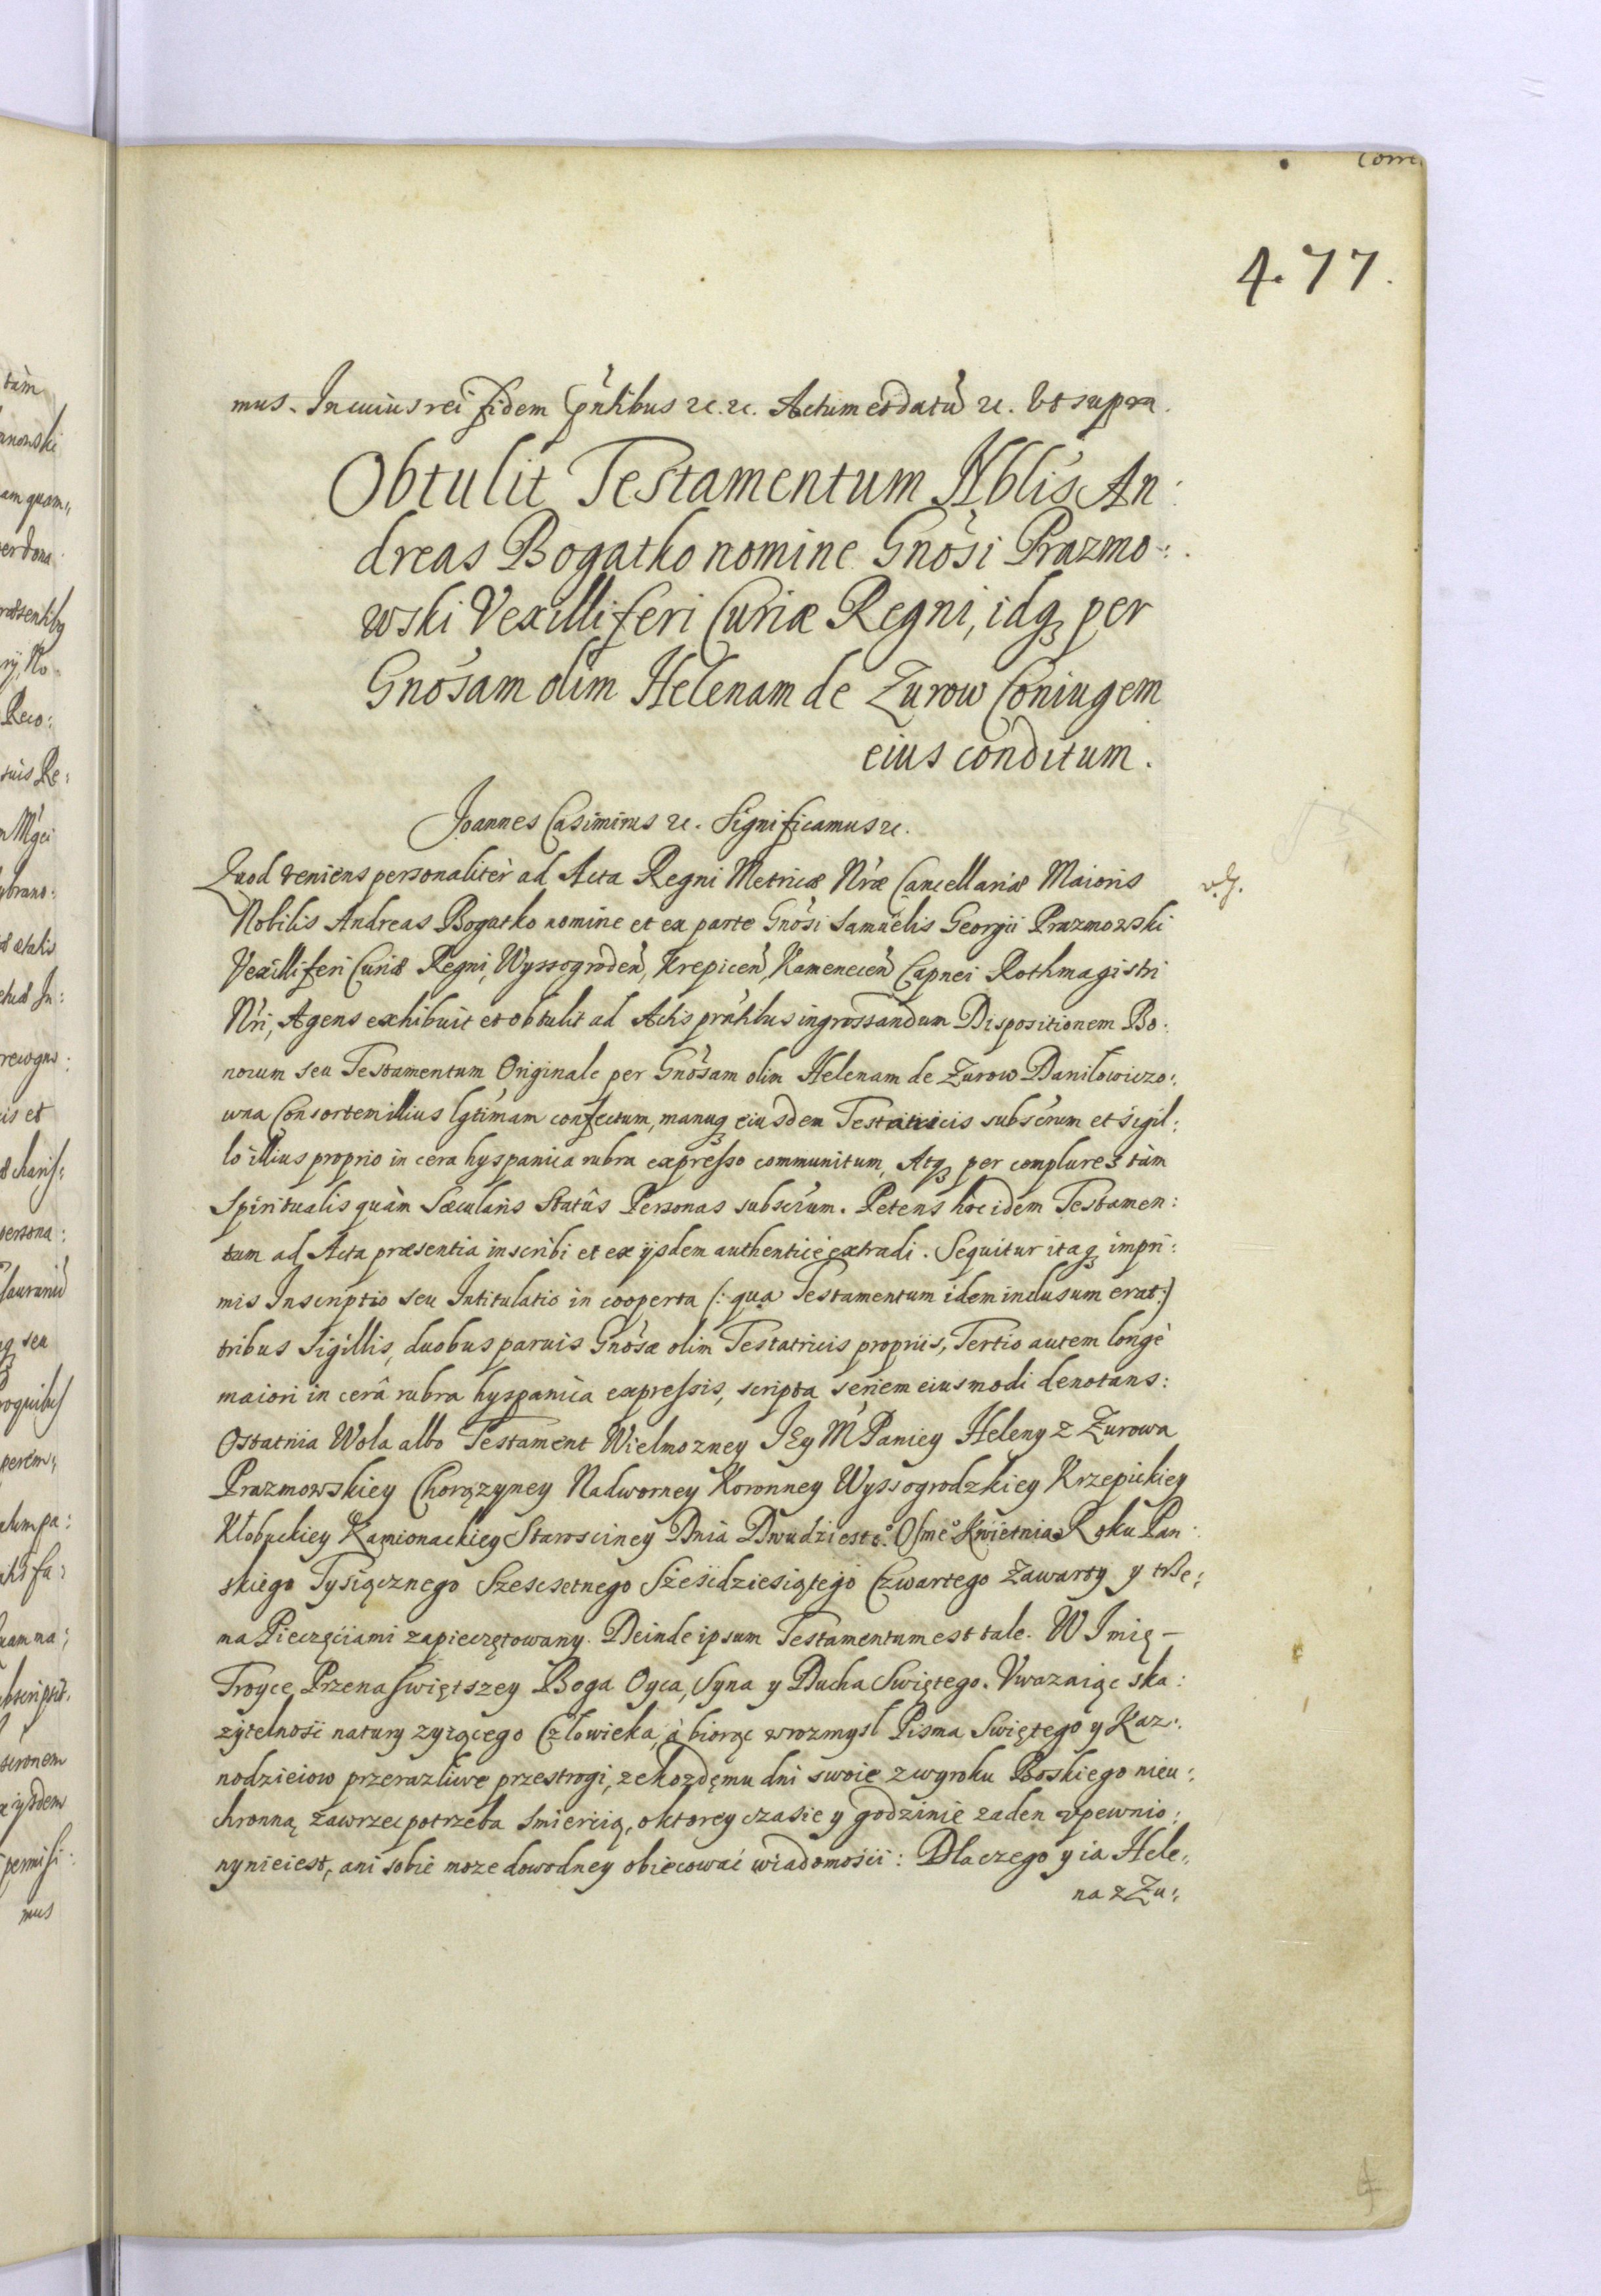 Corre
4.77.
mus. In cuius rei fidem pntibus etc. etc. Actum et datũ etc. Vt supra.
Obtulit Testamentum Nblis An:
dreas Bogatko nomine Gnosi Prazmo:
wski Vexilliferi Curiæ Regni, idq3 per
Gnosam olim Helenam de Zurow Coniugem
eius conditum.
Joannes Casimirus etc. Significamus etc.
Quod veniens personalitèr ad Acta Regni Metricæ Nræ Cancellariæ Maioris
Nobilis Andreas Bogatko nomine et ex parte Gnosi Samuelis Georgii Prazmowski
Vexilliferi Curiæ Regni, Wyssogroden, Krepicen, Kamenecen Capnei Rothmagistri
Nri, Agens exhibuit et obtulit ad Actis prntibus ingrossandum Dispositionem Bo:
norum seu Testamentum Originale per Gnosam olim Helenam de Zurow Danilowiczo:
wna Consortem illius lgtimam confectum, manuq3 eiusdem Testatricis subscrum et sigil:
lo illius proprio in cera hyspanica rubra expresso communitum, Atq3 per complures tàm
Spiritualis quàm Sæcularis Statûs Personas subscrum. Petens hoc idem Testamen:
tum ad Acta præsentia inscribi et ex ijsdem authenticè extradi. Sequitur itaq3 impri:
mis Inscriptio seu Intitulatio in cooperta (: qua Testamentum idem inclusum erat:)
tribus Sigillis, duobus paruis Gnosæ olim Testatricis propriis, Tertio autem longè
maiori in cerâ rubra hyspanica expressis, scripta seriem eiusmodi denotans:
Ostatnia Wola albo Testament Wielmozney JEy M Paniey Heleny z Zurowa
Prazmowskiey Chorązyney Nadworney Koronney Wyssogrodzkiey Krzepickiey
Kłobuckiey Kamionackiey Starosciney Dnia Dwudzieste° Osme° Kwietnia Roku Pan:
skiego Tysiącznego Szescsetnego Sześćdziesiątego Czwartego zawarty y trze:
ma Pieczęćiami zapieczętowany. Deinde ipsum Testamentum est tale. W Imię
Troyce Przenaswiętszey Boga Oyca, Syna y Ducha Swiętego. Vwazaiąc ska:
zytelność natury zyiącego Człowieka, à biorąc w rozmysł Pisma Swiętego y Kaz:
nodzieiow przerazliwe przestrogi, ze kozdęmu dni swoie z wyroku Boskiego nieu:
chronną zawrzec potrzeba smiercią, o ktorey czasie y godzinie zaden vpewnio:
ny nieiest, ani sobie moze dowodney obiecować wiadomości: Dlaczego y ia Hele:
na z Zu: